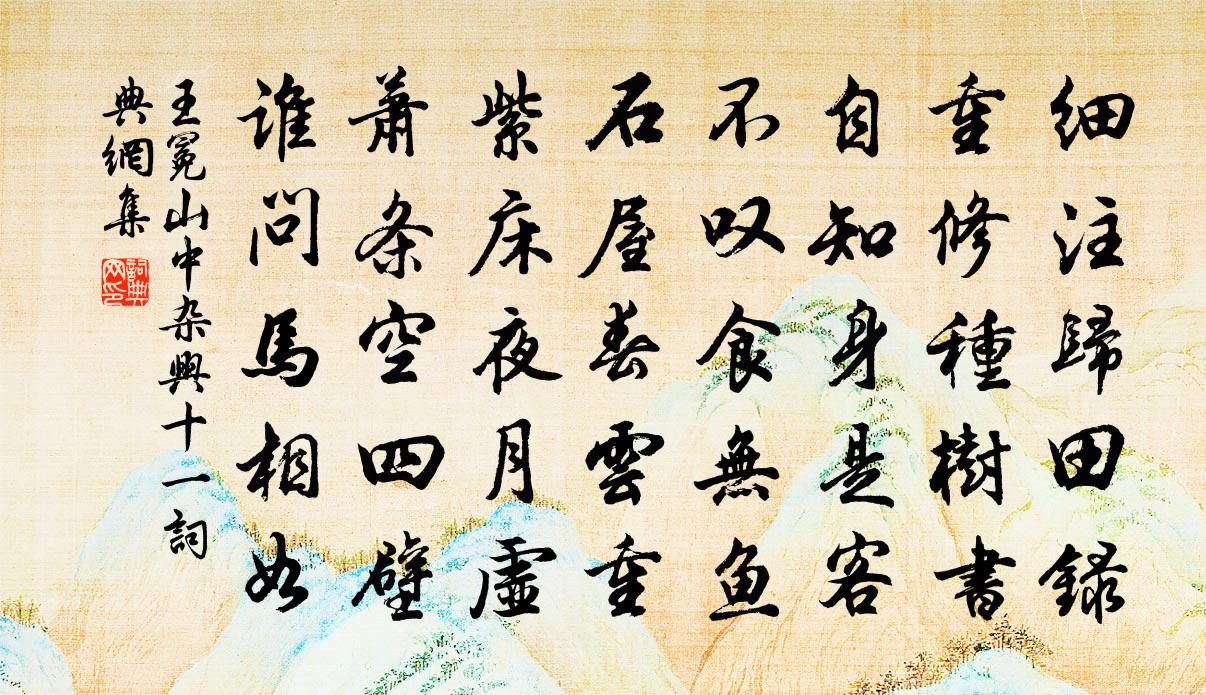 细注歸田録
重修種樹書
自知身是客
不叹食無魚
石屋春雲重
紫床夜月虛
萧条空四壁
谁问馬相如
王冕山中杂興十一詞
典網集
詞典
网印